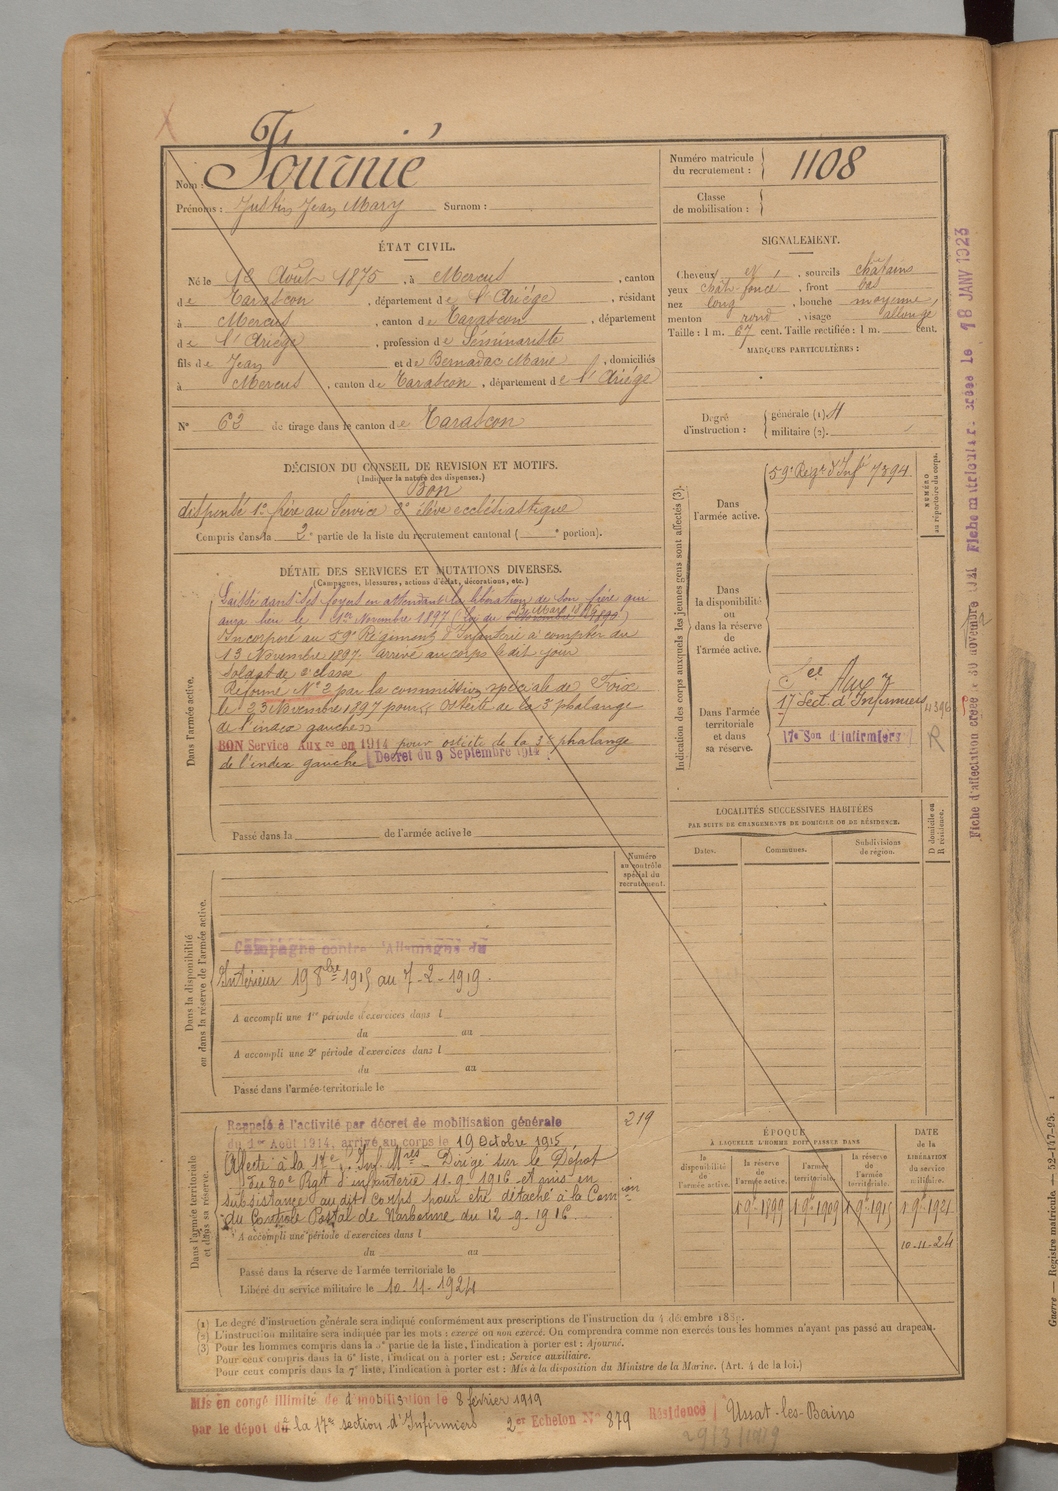 Fournié
Nom :
Prénoms : Justin Jean Mary Surnom :
Numéro matricule
du recrutement :
1108
Classe
de mobilisation :
ÉTAT CIVIL.
Né le 12 Août 1875, à Mercus, canton
de Tarascon, département de l'Ariége, résidant
à Mercus, canton de Tarascon, département
de l'Ariége, profession de Séminariste
fils de Jean et de Bernadac Marie, domiciliés
à Mercus, canton de Tarascon, département de l'Ariége
N° 63 de tirage dans le canton de Tarascon
SIGNALEMENT.
Cheveux et, sourcils châtains
yeux chât. foncé, front bas
nez long, bouche moyenne,
menton rond, visage allongé
Taille : 1 m. 67 cent. Taille rectifiée : 1 m. cent.
MARQUES PARTICULIÈRES :
Degré
d'instruction :
générale (1). 4
militaire (2).
DÉCISION DU CONSEIL DE REVISION ET MOTIFS.
(Indiquer la nature des dispenses.)
Bon
dispensé 1° frère au Service 2° élève ecclésiastique
Compris dans la 2e partie de la liste du recrutement cantonal ( e portion).
DÉTAIL DES SERVICES ET MUTATIONS DIVERSES.
(Campagnes, blessures, actions d'éclat, décorations, etc.)
Dans l'armée active.
Laissé dans ses foyers en attendant la libération de son frère qui
aura lieu le 1er Novembre 1897
Incorporé au 59e Régiment d'Infanterie à compter du
13 Novembre 1897. arrivé au corps le dit jour
Soldat de 2e classe
Réformé N° 2 par la commission spéciale de Foix
le 23 Novembre 1897 pour « Ostéite de la 3e phalange
de l'index gauche »
BON Service Auxre en 1914 pour ostéite de la 3e phalange
de l'index gauche Décret du 9 Septembre 1914
Passé dans la de l'armée active le
Indication des corps auxquels les jeunes gens sont affectés (3).
Dans
l'armée active.
59e Régt d'Infie 7394
NUMÉRO
au répertoire du corps.
Dans
la disponibilité
ou
dans la réserve
de
l'armée active.
Dans
l'armée
territoriale
et dans
sa réserve.
Sce Aux
17e Sect. d'Infirmiers
17e Son d'Infirmiers
Fiche matriculaire créée le 18 JANV 1923
Fiche d'affectation créée le 30 novembre 1921
LOCALITÉS SUCCESSIVES HABITÉES
PAR SUITE DE CHANGEMENTS DE DOMICILE OU DE RÉSIDENCE.
Dates.
Communes.
Subdivisions
de région.
D domicile ou
R résidence.
Numéro
au contrôle
spécial du
recrutement.
Dans la disponibilité
ou dans la réserve de l'armée active.
Campagne contre l'Allemagne du
Intérieur 19 8bre 1915 au 7-2-1919.
A accompli une 1re période d'exercices dans l
du au
A accompli une 2e période d'exercices dans l
du au
Passé dans l'armée territoriale le
Dans l'armée territoriale
et dans sa réserve.
219
Rappelé à l'activité par décret de mobilisation générale
du 1er Août 1914, arrivé au corps le 19 Octobre 1915
Affecté à la 17e S. Infirmres Dirigé sur le Dépôt
du 80e Rgt d'infanterie 11.9.1916 et mis en
subsistance au dit corps pour être détaché à la Comion
du Contrôle Postal de Narbonne du 12-9-1916.
A accompli une période d'exercices dans l
du au
Passé dans la réserve de l'armée territoriale le
Libéré du service militaire le 10.11.1924
ÉPOQUE
À LAQUELLE L'HOMME DOIT PASSER DANS
la
disponibilité
de
l'armée active.
la réserve
de
l'armée active.
l'armée
territoriale.
la réserve
de
l'armée
territoriale.
DATE
de la
LIBÉRATION
du service
militaire.
1 9bre 1899 1 9bre 1909 1 9bre 1915 1 9bre 1921
10.11.24
(1) Le degré d'instruction générale sera indiqué conformément aux prescriptions de l'instruction du 4 décembre 1889.
(2) L'instruction militaire sera indiquée par les mots : exercé ou non exercé. On comprendra comme non exercés tous les hommes n'ayant pas passé au drapeau.
(3) Pour les hommes compris dans la 5e partie de la liste, l'indication à porter est : Ajourné.
Pour ceux compris dans la 6e liste, l'indication à porter est : Service auxiliaire.
Pour ceux compris dans la 7e liste, l'indication à porter est : Mis à la disposition du Ministre de la Marine. (Art. 4 de la loi.)
Mis en congé illimité de démobilisation le 8 février 1919
par le dépôt de la 17e section d'Infirmiers 2er Echelon N° 879 Résidence Ussat-les-Bains
29/3/1919
Guerre — Registre matricule — 52-147-95.